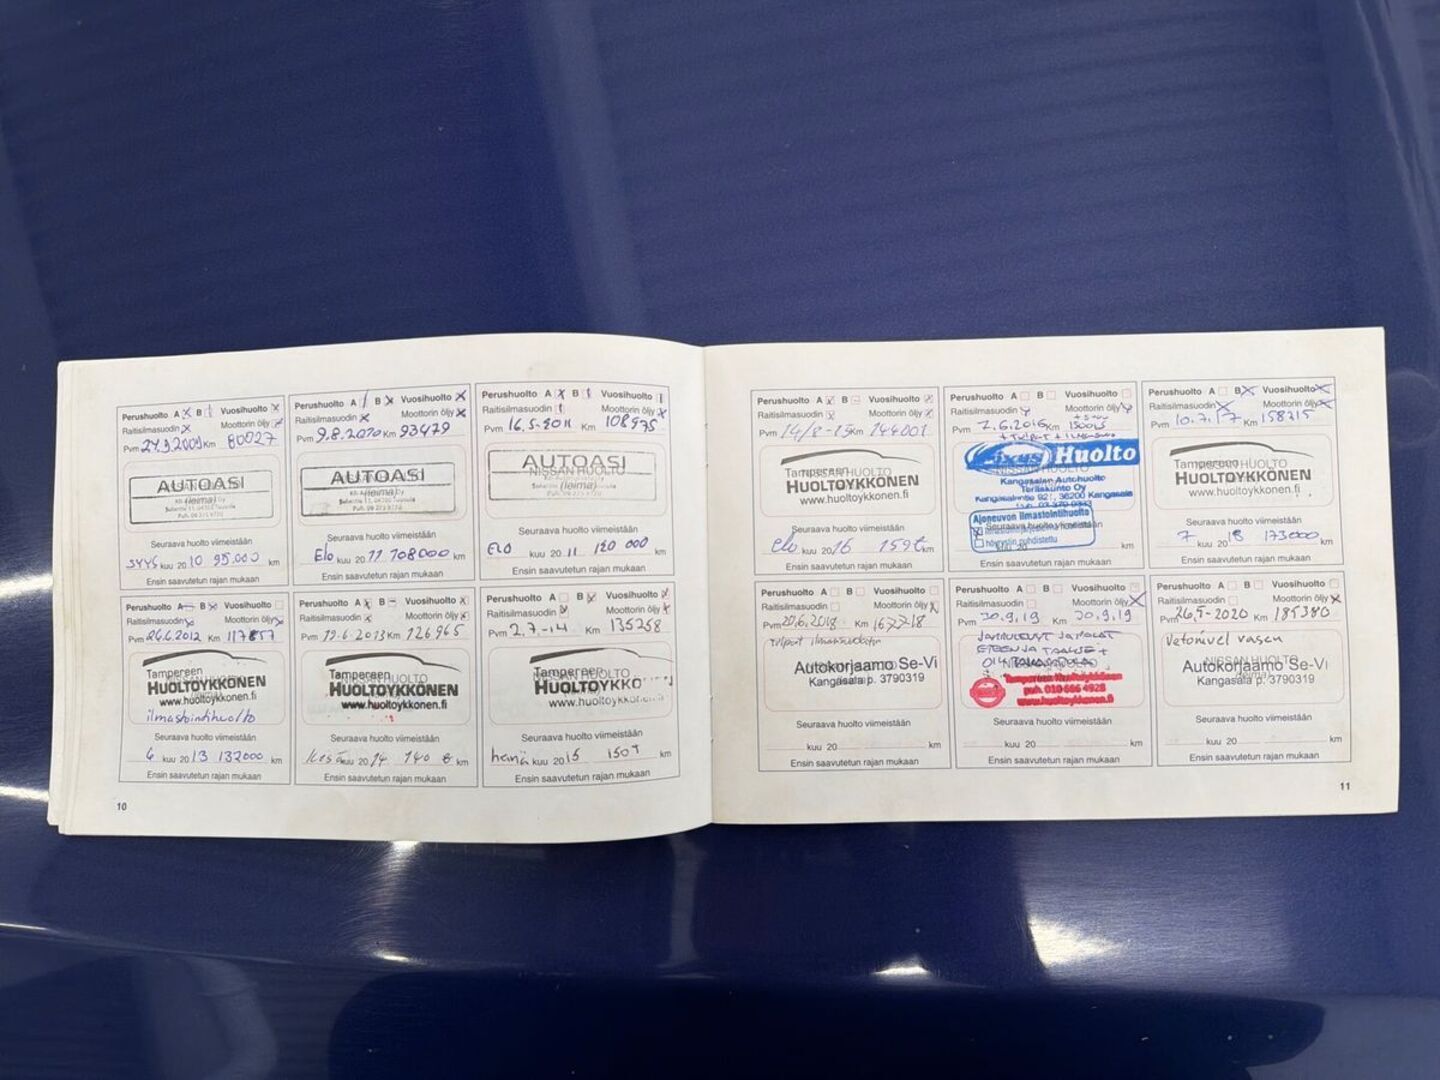 Perushuolto A B Vuosihuolto
Raitisilmasuodin Moottorin öljy
Pvm 24.9.2009 Km 80027
AUTOASI
(leima)
Seuraava huolto viimeistään
kuu 2010 95.000 km
Ensin saavutetun rajan mukaan
Perushuolto A B Vuosihuolto
Raitisilmasuodin Moottorin öljy
Pvm 9.8.2010 Km 93479
AUTOASI
(leima)
Seuraava huolto viimeistään
Elo kuu 2011 108000 km
Ensin saavutetun rajan mukaan
Perushuolto A B Vuosihuolto
Raitisilmasuodin Moottorin öljy
Pvm 16.5-2011 Km 108975
AUTOASI
NISSAN HUOLTO
(leima)
Seuraava huolto viimeistään
ELO kuu 2011 120 000 km
Ensin saavutetun rajan mukaan
Perushuolto A B Vuosihuolto
Raitisilmasuodin Moottorin öljy
Pvm 26.6.2012 Km 117857
Tampereen
HUOLTOYKKÖNEN
www.huoltoykkonen.fi
ilmastointihuolto
Seuraava huolto viimeistään
6 kuu 2013 132000 km
Ensin saavutetun rajan mukaan
Perushuolto A B Vuosihuolto
Raitisilmasuodin Moottorin öljy
Pvm 19.6.2013 Km 126965
Tampereen
NISSAN HUOLTO
HUOLTOYKKÖNEN
www.huoltoykkonen.fi
Seuraava huolto viimeistään
Kesä kuu 2014 140 km
Ensin saavutetun rajan mukaan
Perushuolto A B Vuosihuolto
Raitisilmasuodin Moottorin öljy
Pvm 2.7.-14 Km 135258
Tampereen
NISSAN HUOLTO
HUOLTOYKKÖ
www.huoltoykko
Seuraava huolto viimeistään
heinä kuu 2015 150T km
Ensin saavutetun rajan mukaan
10
Perushuolto A B Vuosihuolto
Raitisilmasuodin Moottorin öljy
Pvm 14/8-15 Km 144001
Tampereen
NISSAN HUOLTO
HUOLTOYKKÖNEN
www.huoltoykkonen.fi
Seuraava huolto viimeistään
elo kuu 2016 159t km
Ensin saavutetun rajan mukaan
Perushuolto A B Vuosihuolto
Raitisilmasuodin Moottorin öljy
Pvm 7.6.2016 Km
Huolto
Kangasalan Autohuolto
Teräskunto Oy
Kangasalantie 921, 36200 Kangasala
Ajoneuvon ilmastointihuolto
Seuraava huolto viimeistään
höyrystin puhdistettu
kuu 20 km
Ensin saavutetun rajan mukaan
Perushuolto A B Vuosihuolto
Raitisilmasuodin Moottorin öljy
Pvm 10.7.17 Km 158215
Tampereen
NISSAN HUOLTO
HUOLTOYKKÖNEN
www.huoltoykkonen.fi
Seuraava huolto viimeistään
7 kuu 2018 173000 km
Ensin saavutetun rajan mukaan
Perushuolto A B Vuosihuolto
Raitisilmasuodin Moottorin öljy
Pvm 20.6.2018 Km 167718
Autokorjaamo Se-Vi
Kangasala p. 3790319
Seuraava huolto viimeistään
kuu 20 km
Ensin saavutetun rajan mukaan
Perushuolto A B Vuosihuolto
Raitisilmasuodin Moottorin öljy
Pvm 30.9.19 Km 30.9.19
JARRULEVYT JA PALAT
ETEEN JA TAAKSE +
Tampereen Huoltoykkönen
puh. 010 666 4928
www.huoltoykkonen.fi
Seuraava huolto viimeistään
kuu 20 km
Ensin saavutetun rajan mukaan
Perushuolto A B Vuosihuolto
Raitisilmasuodin Moottorin öljy
Pvm 26.5-2020 Km 185380
Vetonivel vasen
NISSAN HUOLTO
Autokorjaamo Se-Vi
Kangasala p. 3790319
Seuraava huolto viimeistään
kuu 20 km
Ensin saavutetun rajan mukaan
11